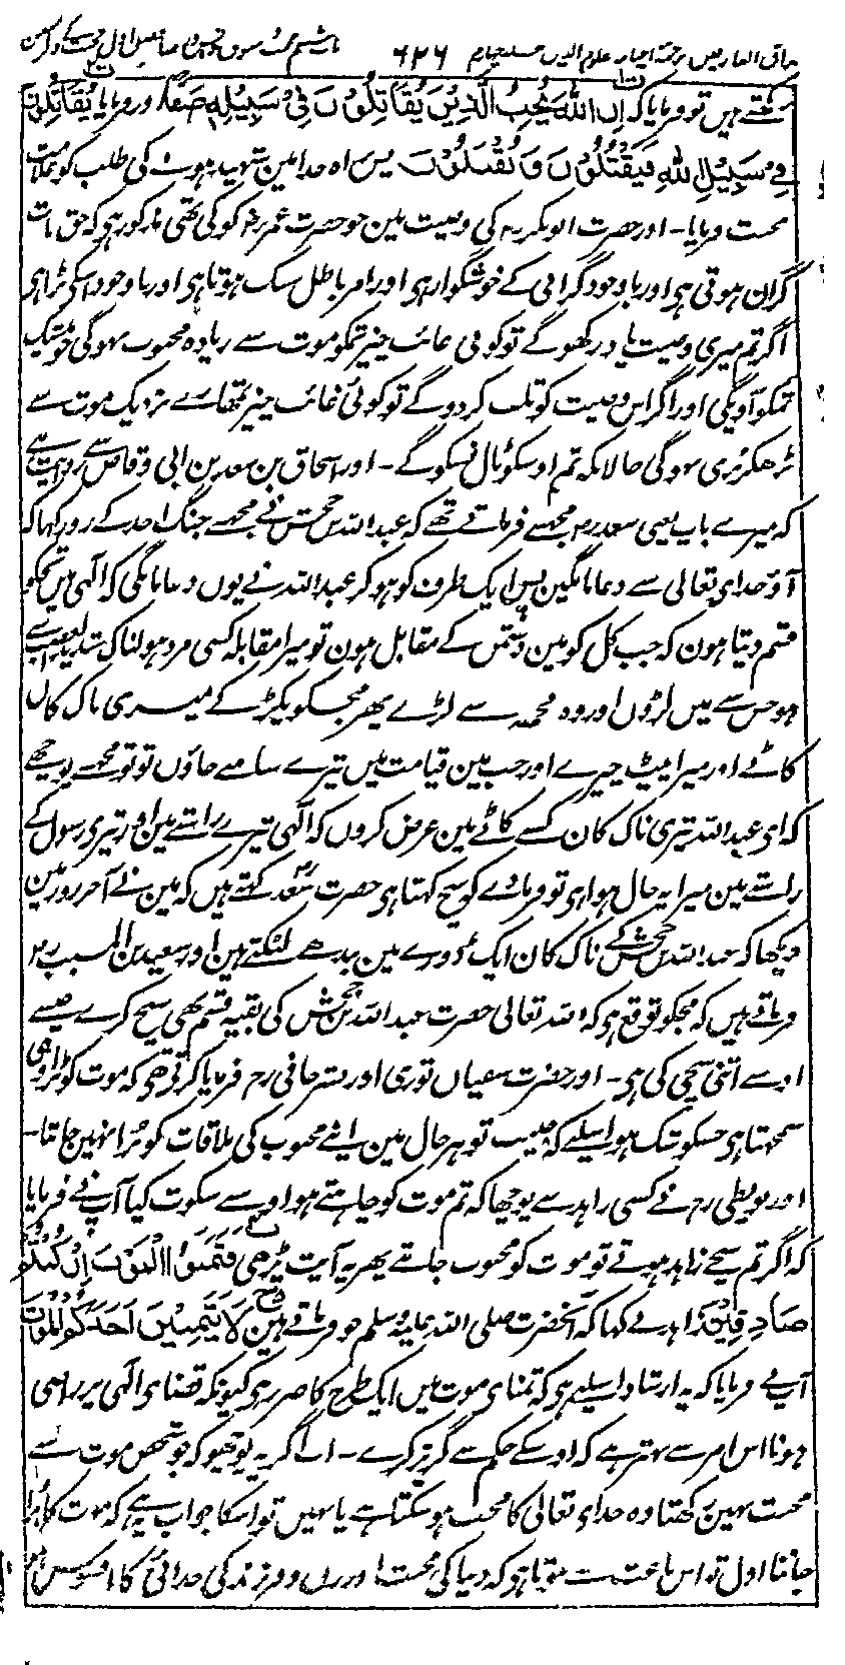 مذاق العارفین ترجمۂ احیاء علوم الدین جلد چہارم ۶۲۶ باب ششم محبت
کہتے ہیں تو فرمایا کہ اِنَّ اللّٰهَ یُحِبُّ الَّذِیْنَ یُقَاتِلُوْنَ فِیْ سَبِیْلِهٖ صَفًّا اور فرمایا یُقَاتِلُوْنَ
فِیْ سَبِیْلِ اللّٰهِ فَیَقْتُلُوْنَ وَیُقْتَلُوْنَ پس راہ خدا مین شہید ہونے کی طلب کو علامت
محبت فرمایا۔ اور حضرت ابوبکر رض کی وصیت مین جو حضرت عمر رض کو کی تھی مذکور ہی کہ حق بات
گران ہوتی ہی اور باوجود گرانی کے خوشگوار ہی اور امر باطل سبک ہوتا ہی اور باوجود اسکے بُرا ہی
اگر تم میری وصیت یاد رکھو گے تو کوئی غائب چیز تمکو موت سے زیادہ محبوب نہوگی جو بیشک
تمکو آویگی اور اگر اس وصیت کو تلف کر دو گے تو کوئی غائب چیز تمھارے نزدیک موت سے
بڑھکر بُری نہوگی حالانکہ تم اوسکو ٹال نسکو گے۔ اور اسحاق بن سعد بن ابی وقاص سے روایت ہے
کہ میرے باپ یعنی سعد رض مجھسے فرماتے تھے کہ عبداللہ بن جحش نے مجھسے جنگ احد کے روز کہا کہ
آؤ خدای تعالی سے دعا مانگین پس ایک طرف کو ہو کر عبداللہ نے یوں دعا مانگی کہ الٰہی میں تجکو
قسم دیتا ہون کہ جب کل کو مین دشمن کے مقابل ہون تو میرا مقابلہ کسی مرد ہولناک شدید الغضب سے
ہو جس سے میں لڑوں اور وہ مجھ سے لڑے پھر مجکو پکڑ کے میری ناک کان
کاٹے اور میرا پیٹ چیرے اور جب مین قیامت میں تیرے سامنے جاؤں تو تو مجھسے پوچھے
کہ ای عبداللہ تیری ناک کان کسنے کاٹے مین عرض کروں کہ الٰہی تیرے راستے مین اور تیری رسول کے
راستے مین میرا یہ حال ہوا ہی تو فرماوے کہ سچ کہتا ہی حضرت سعد کہتے ہیں کہ مین نے آخر روز مین
دیکھا کہ عبداللہ بن جحش کے ناک کان ایک ڈورے مین بندھے لٹکتے ہین اور سعید بن المسیب رح
فرماتے ہیں کہ مجکو توقع ہو کہ اللہ تعالی حضرت عبداللہ بن جحش کی بقیہ قسم بھی سچ کرے جیسے
اوسنے اتنی سچی کی ہی۔ اور حضرت سفیاں ثوری اور بشر حافی رح فرمایا کرتے تھے کہ موت کو بُرا وہی
سمجھتا ہی جسکو شک ہو اسلیے کہ حبیب تو ہر حال مین اپنے محبوب کی ملاقات کو بُرا نہین جانتا۔
اور بویطی رح نے کسی زاہد سے پوچھا کہ تم موت کو چاہتے ہو اوسنے سکوت کیا آپ نے فرمایا
کہ اگر تم سچے زاہد ہوتے تو موت کو محبوب جانتے پھر یہ آیت پڑھی فَتَمَنَّوُا الْمَوْتَ اِنْ كُنْتُمْ
صَادِقِیْنَ زاہد نے کہا کہ آنحضرت صلی اللہ علیہ وسلم جو فرماتے ہین لَا یَتَمَنَّیَنَّ اَحَدُكُمُ الْمَوْتَ
آپ نے فرمایا کہ یہ ارشاد اسلیے ہی کہ تمنای موت میں ایک طرح کا ضرر ہی کیونکہ قضای الٰہی پر راضی
ہونا اس امر سے بہتر ہے کہ اوسکے حکم سے گریز کرے۔ اب اگر یہ پوچھو کہ جو شخص موت سے
محبت نہین رکھتا وہ خدای تعالیٰ کا محب ہو سکتا ہے یا نہیں تو اسکا جواب یہ ہے کہ موت کا بُرا
جاننا اول تو اس باعث سے ہوتا ہو کہ دنیا کی محبت اور زن و فرزند کی جدائی کا افسوس